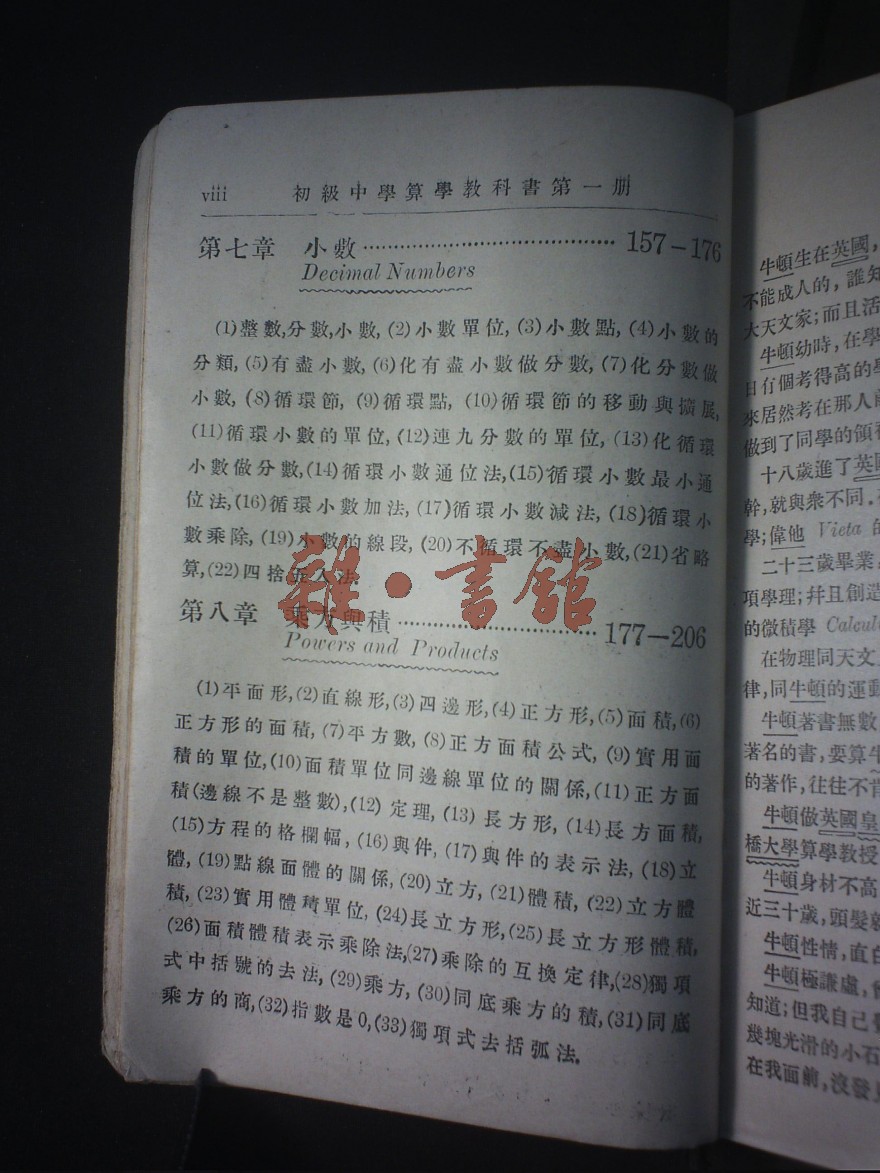 viii 初級中學算學教科書第一册
第七章 小數 157－176
Decimal Numbers
(1)整數,分數,小數, (2)小數單位, (3)小數點, (4)小數的
分類, (5)有盡小數, (6)化有盡小數做分數, (7)化分數做
小數, (8)循環節, (9)循環點, (10)循環節的移動與擴展,
(11)循環小數的單位, (12)連九分數的單位, (13)化循環
小數做分數,(14)循環小數通位法,(15)循環小數最小通
位法,(16)循環小數加法, (17)循環小數減法, (18)循環小
數乘除, (19)小數的線段, (20)不循環不盡小數,(21)省略
算,(22)四捨五入法.
雜·書館
第八章 乘方與積 177—206
Powers and Products
(1)平面形,(2)直線形,(3)四邊形,(4)正方形,(5)面積,(6)
正方形的面積, (7)平方數, (8)正方面積公式, (9)實用面
積的單位,(10)面積單位同邊線單位的關係,(11)正方面
積(邊線不是整數),(12) 定理, (13) 長方形, (14)長方面積,
(15)方程的格欄幅, (16)與件, (17)與件的表示法, (18)立
體, (19)點線面體的關係, (20)立方, (21)體積, (22)立方體
積, (23)實用體積單位, (24)長立方形,(25)長立方形體積,
(26)面積體積表示乘除法,(27)乘除的互換定律,(28)獨項
式中括號的去法, (29)乘方, (30)同底乘方的積, (31)同底
乘方的商,(32)指數是0,(33)獨項式去括弧法.
牛頓生在英國,
不能成人的, 誰知
大天文家; 而且活
牛頓幼時, 在學
日有個考得高的學
來居然考在那人前
做到了同學的領
十八歲進了英國
幹, 就與衆不同.
學; 偉他 Vieta 的
二十三歲畢業,
項學理; 幷且創造
的微積學 Calcul
在物理同天文
律, 同牛頓的運動
牛頓著書無數
著名的書, 要算牛
的著作, 往往不肯
牛頓做英國皇
橋大學算學教授
牛頓身材不高
近三十歲, 頭髮
牛頓性情, 直白
牛頓極謙虛,
知道; 但我自己
幾塊光滑的小石
在我面前, 沒發